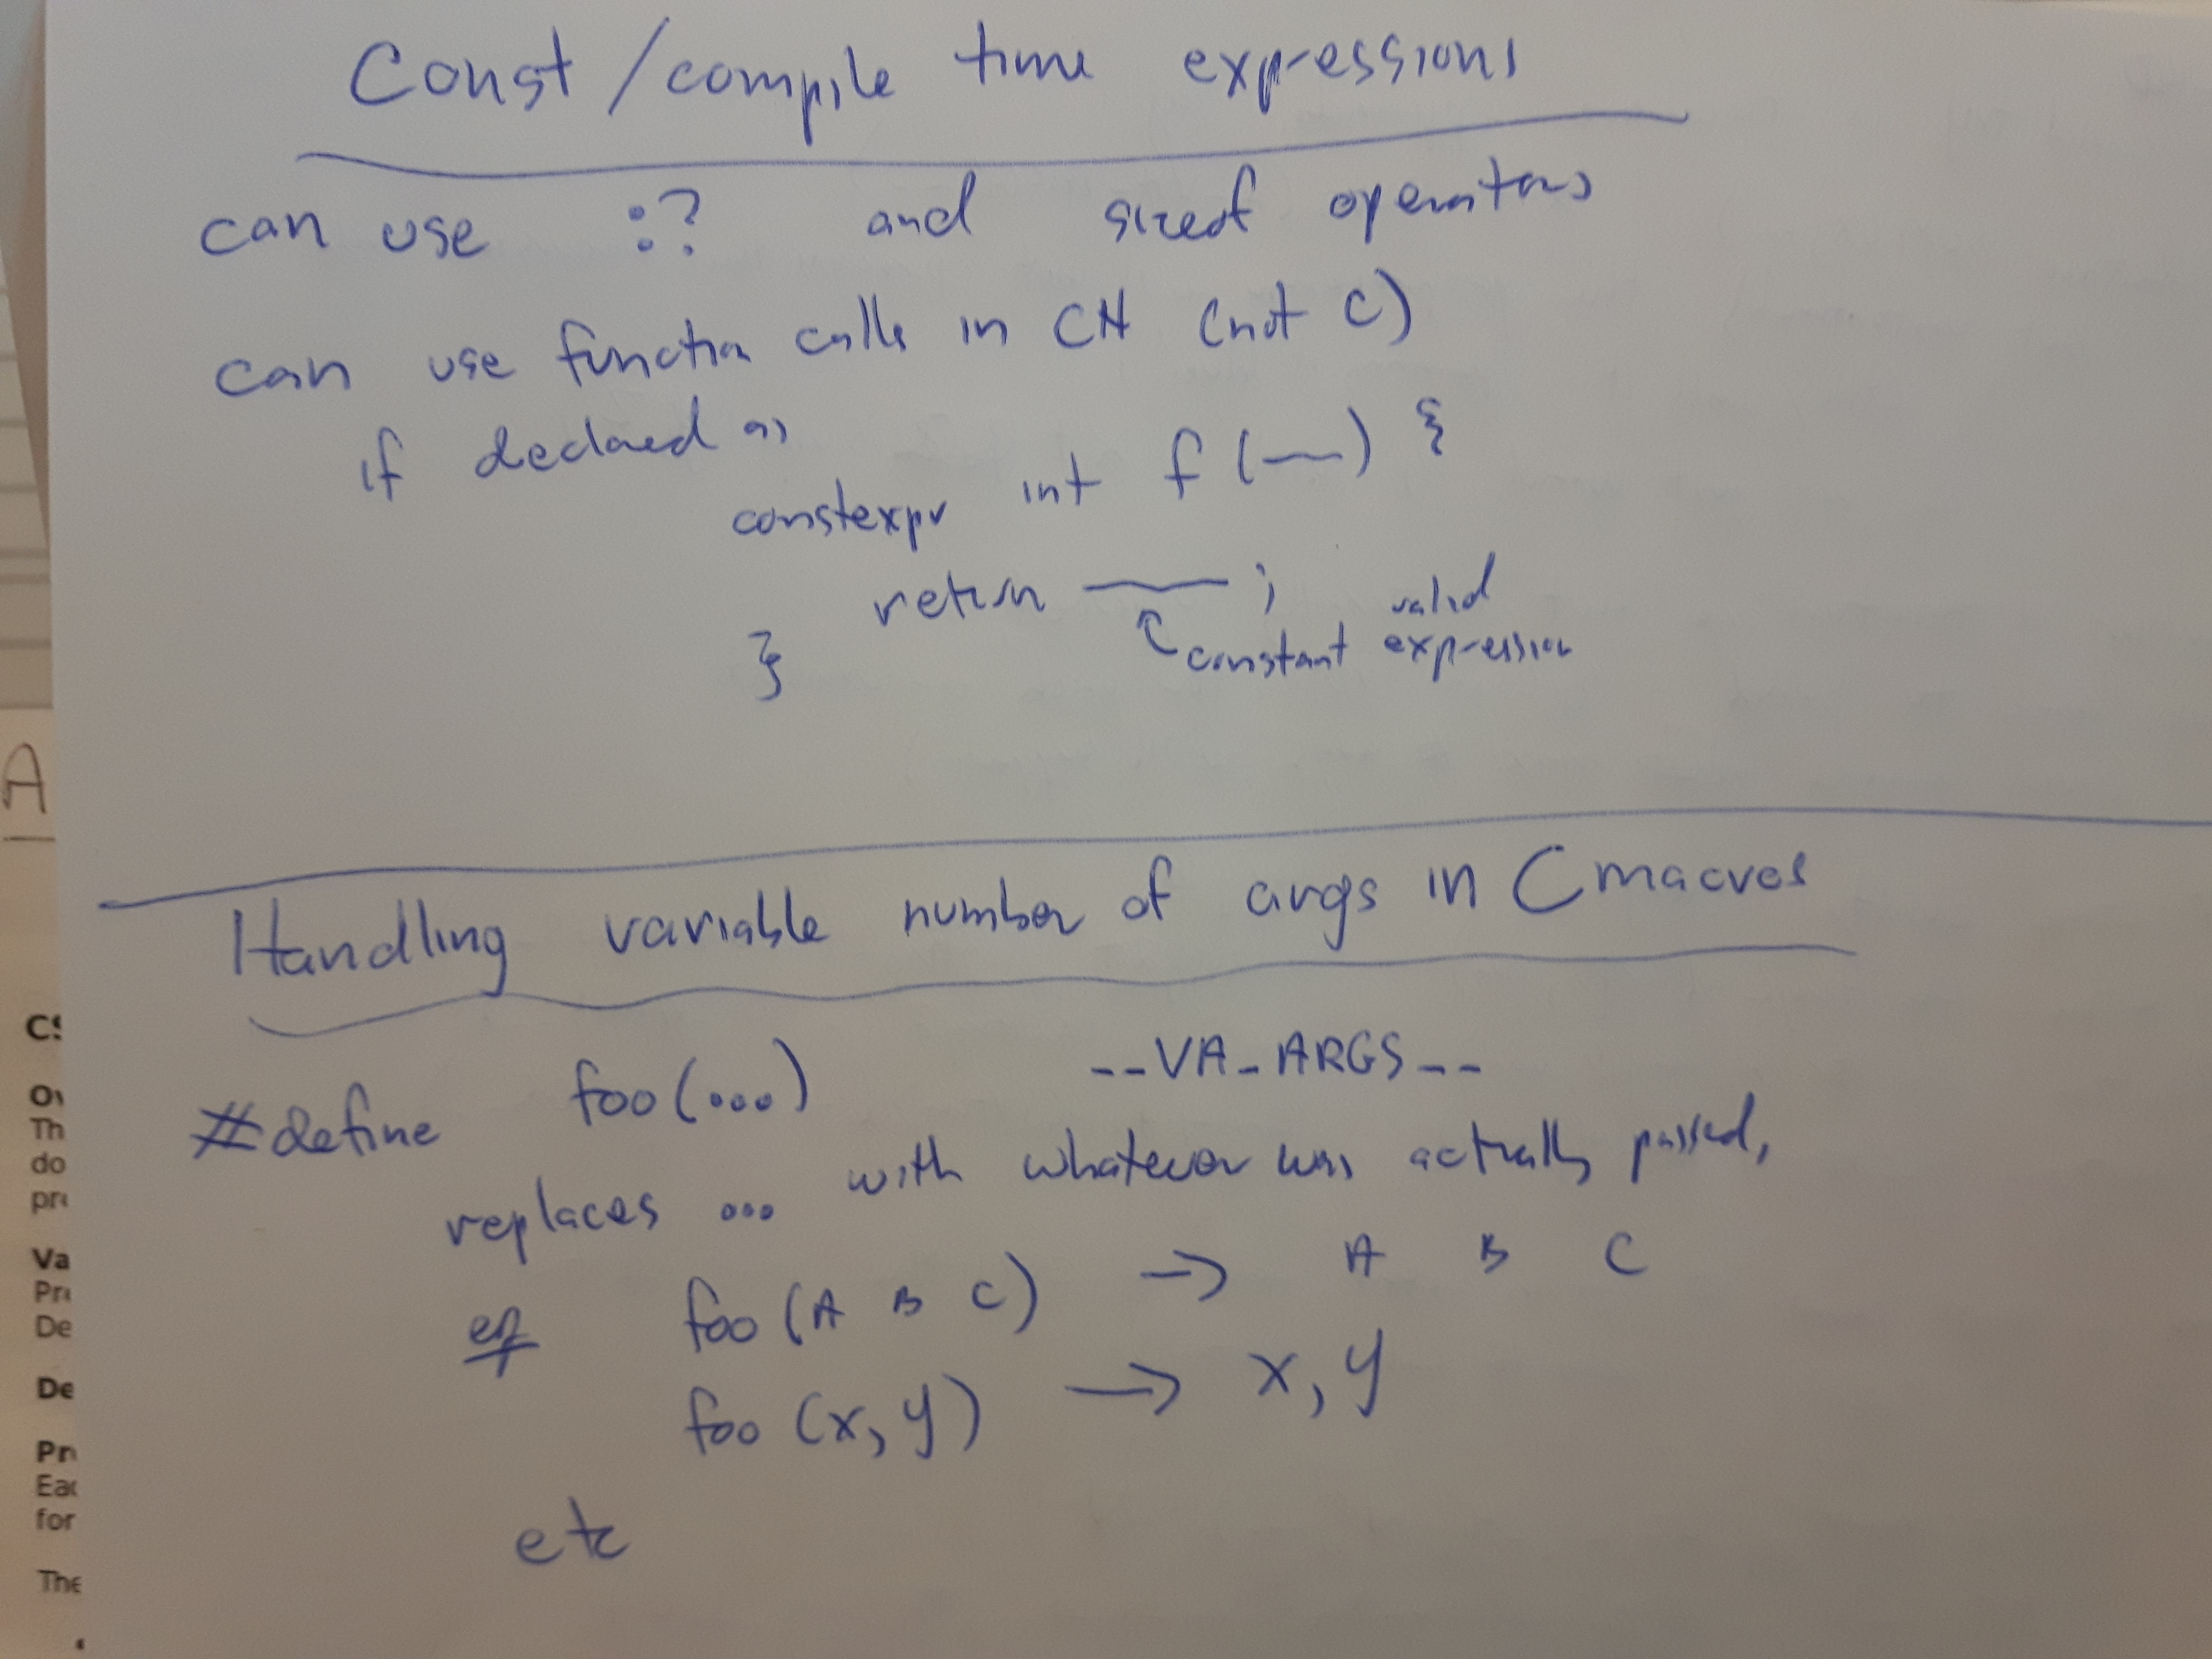 Const/compile time expressions
can use :? and sizeof operators
can use function calls in C++ (not C)
if declared as
constexpr int f (—) {
return —— ;
valid
constant expression
}
Handling variable number of args in C macros
#define foo(...) __VA_ARGS__
replaces ... with whatever was actually passed,
eg foo (A B C) → A B C
foo (x, y) → x, y
etc
A
CS
Ov
Th
do
pr
Va
Pr
De
De
Pr
Ea
for
The